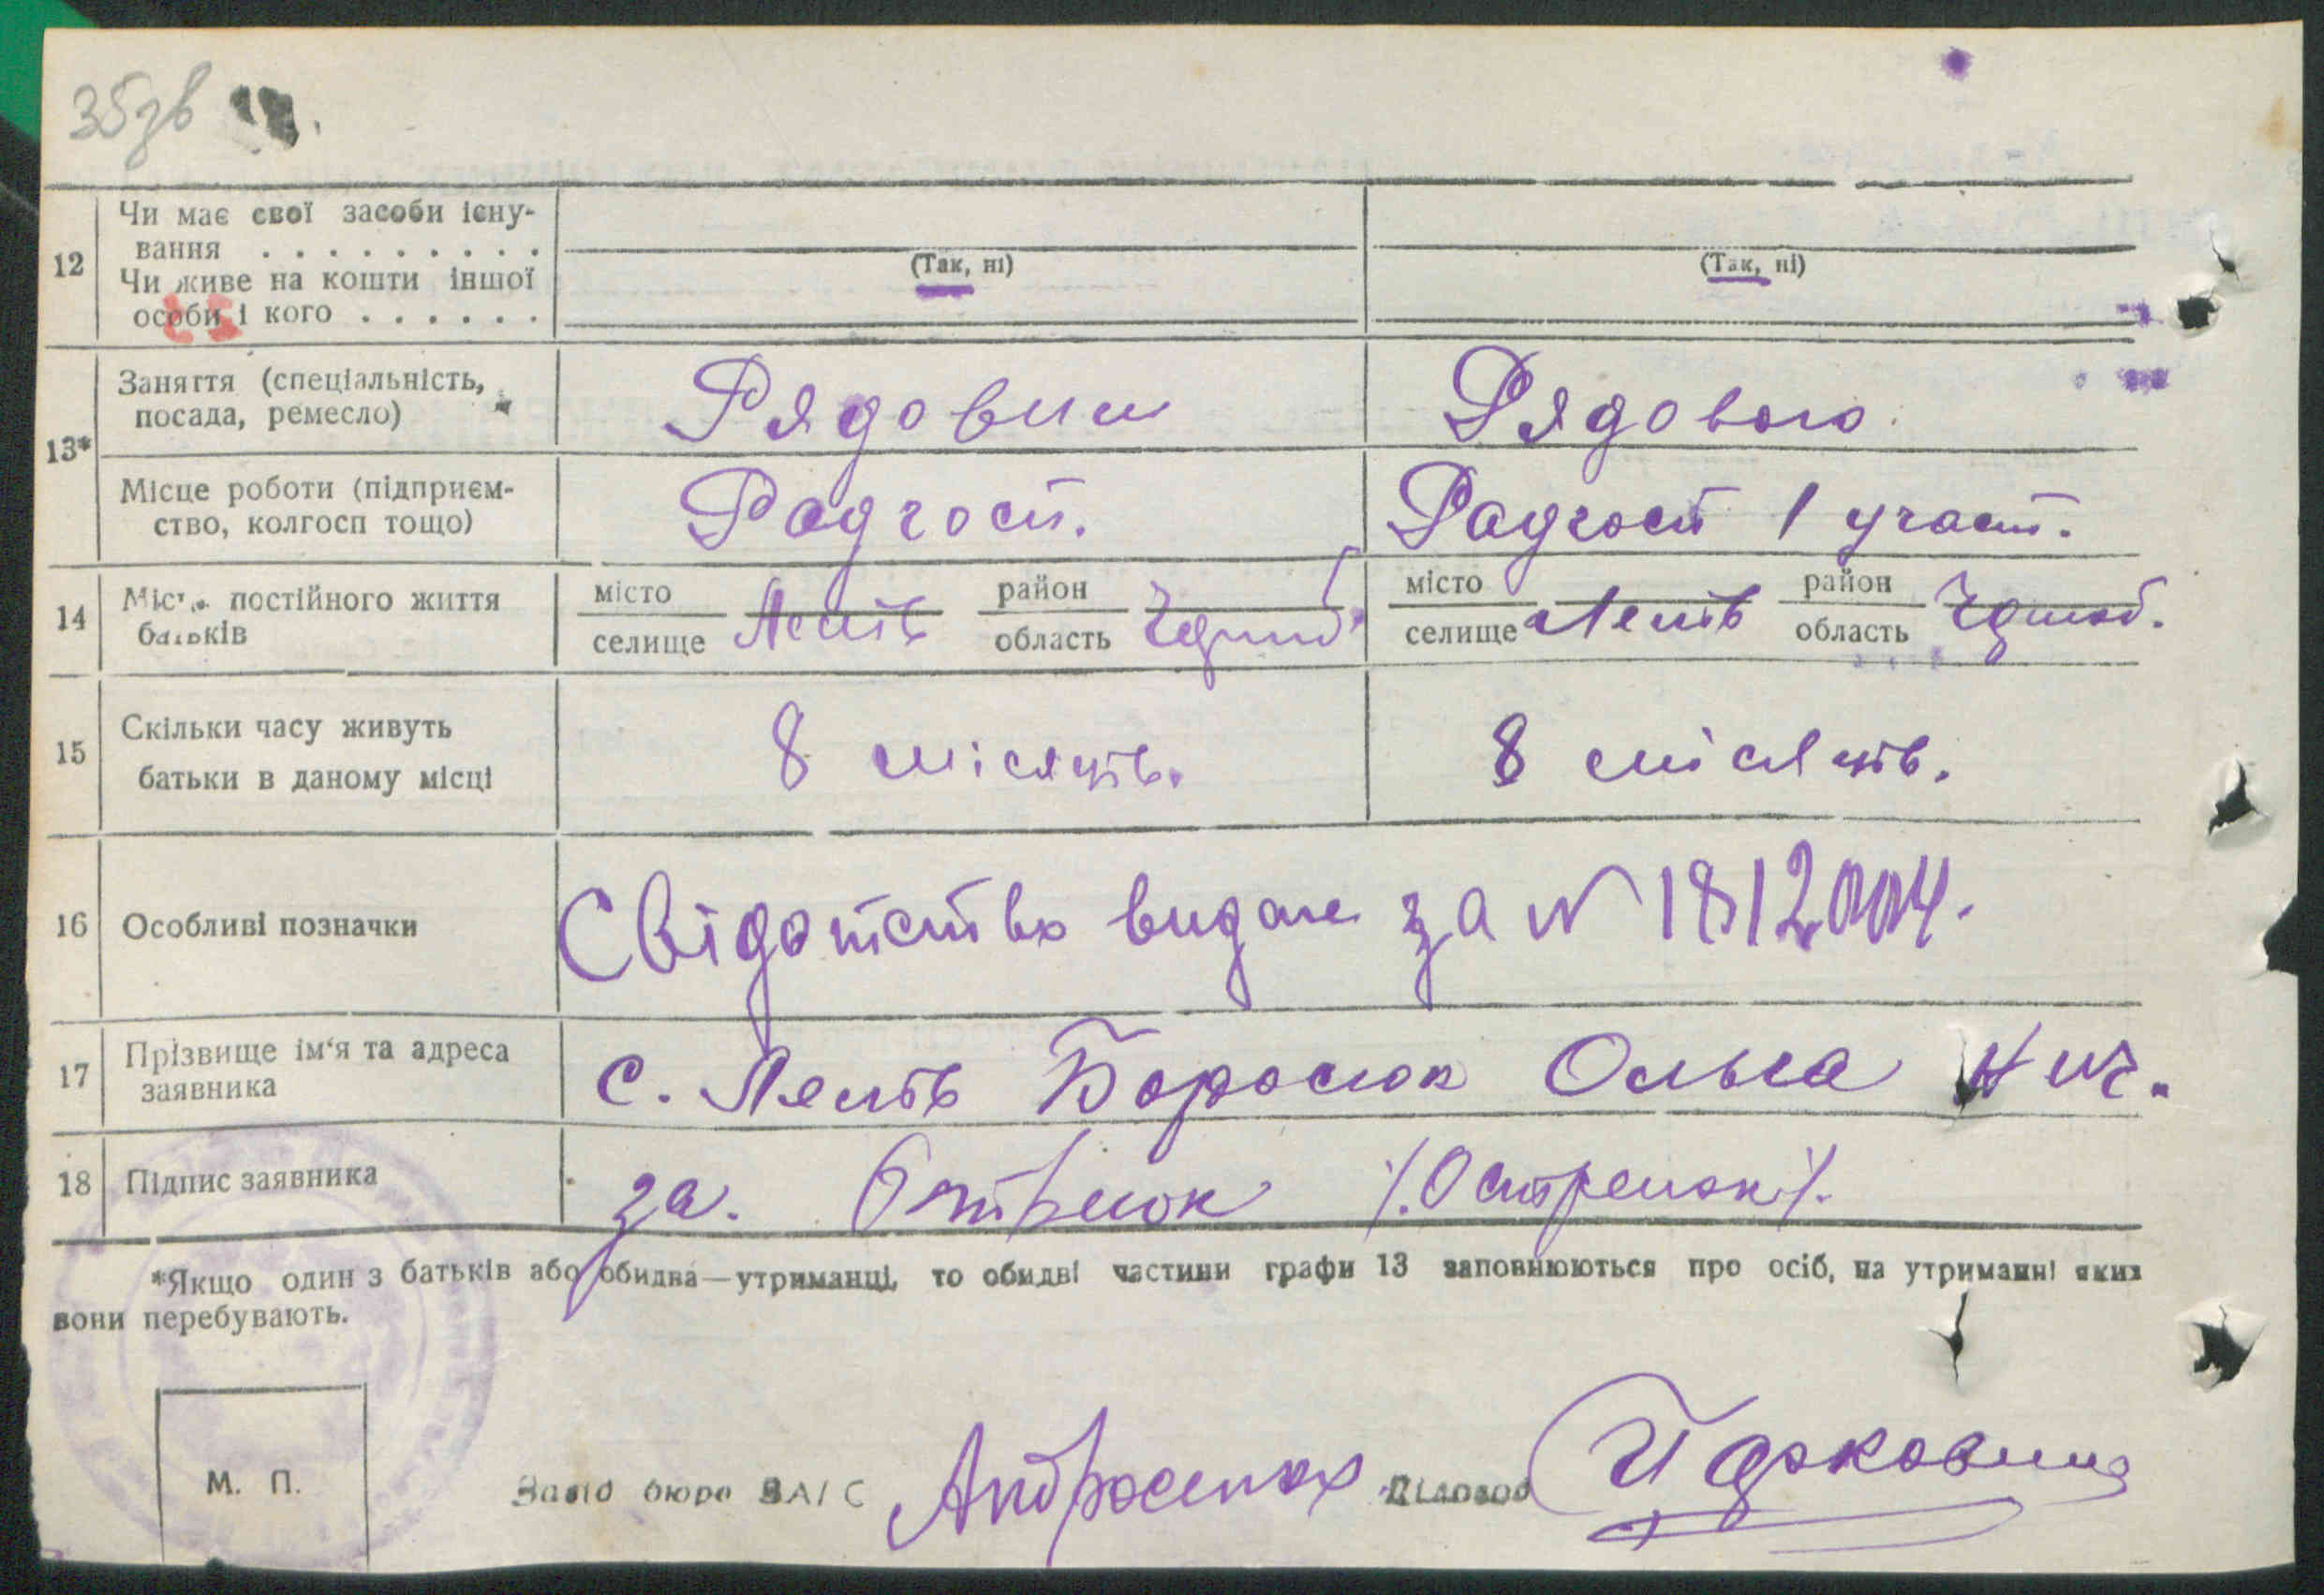 35зв
12 Чи має свої засоби існу-
вання . . . . . . . . .
(Так, ні) (Так, ні)
Чи живе на кошти іншої
особи і кого . . . . . .
13* Заняття (спеціальність,
посада, ремесло) Рядовим Рядового
Місце роботи (підприєм-
ство, колгосп тощо) Радгосп. Радгосп 1 участ.
14 постійного життя
батьків
місто Лелів район місто Лелів район
селище область селище область
15 Скільки часу живуть
батьки в даному місці 8 місяців. 8 місяців.
16 Особливі позначки Свідотство видане за N 1812004.
17 Прізвище ім'я та адреса
заявника с. Лелів Ольга
18 Підпис заявника за.
*Якщо один з батьків або обидва—утриманці, то обидві частини графи 13 заповнюються про осіб, на утриманні яких
вони перебувають.
М. П.
бюро ЗАГС Діловод